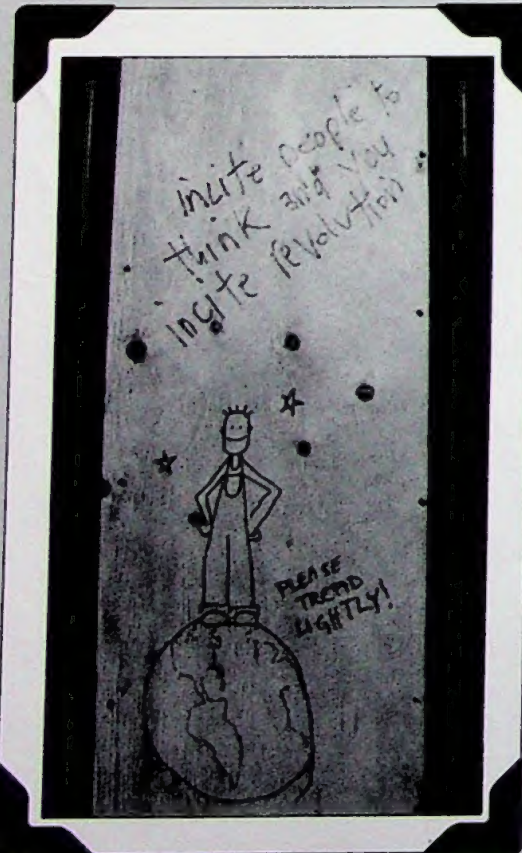 incite people to
think and you
incite revolution
PLEASE
TREAD
LIGHTLY!